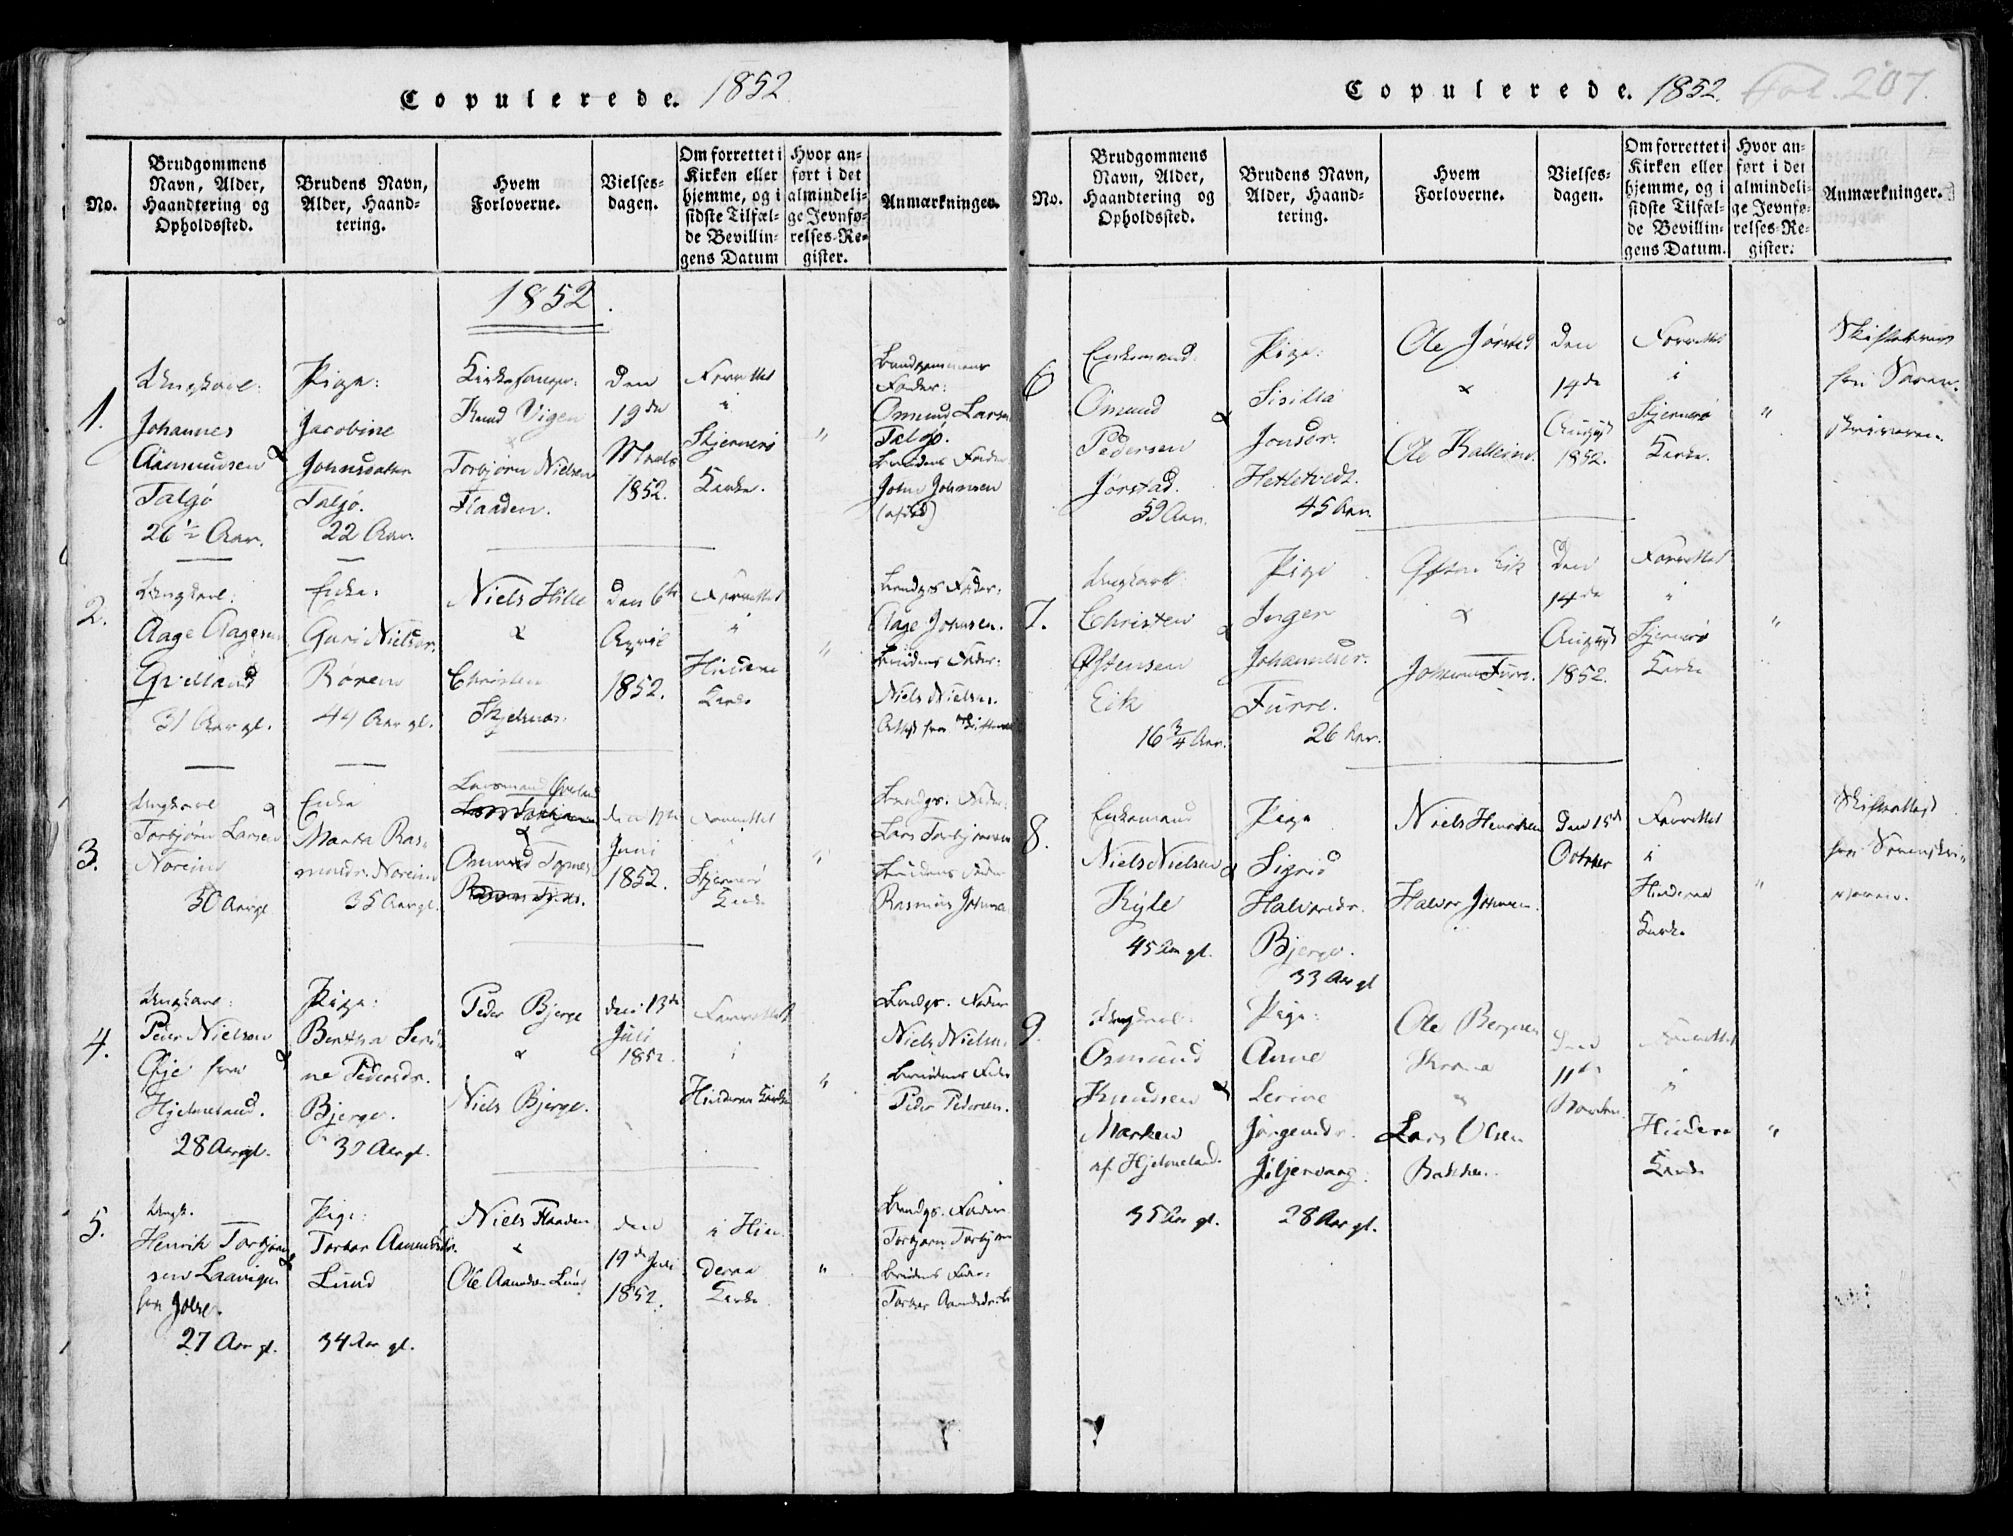 Copulerede. 1852
No.
Brudgommens
Navn, Alder,
Haandtering og
Opholdssted.
Brudens Navn,
Alder, Haand-
tering.
Hvem
Forloverne.
Vielses-
dagen.
Om forrettet i
Kirken eller
hjemme, og i
sidste Tilfæl-
de Bevillin-
gens Datum
Hvor an-
ført i det
almindeli-
ge Jevnfø-
relses-Re-
gister.
Anmærkninger.
1852.
1.
Ungkarl:
Johannes
Aamundsen
Talgø
26 1/2 Aar.
Pige:
Jacobine
Johnsdatter
Talgø.
22 Aar.
Kirkesanger:
Knud Vigen
Torbjørn Nielsen
Flaaden.
den
19de
Marts
1852.
Forrettet
i
Skjernerø
Kirke.
"
Brudgommens
Fader:
Omund Larsen
Talgø.
Brudens Fader
John Johnsen
2.
Ungkarl:
Aage Aagesen
Qvilland
31 Aar gl.
Enke:
Guri Nielsdr.
Røren
44 Aar gl.
Niels Hille
&
Christen
Skjelnes.
den 6te
April
1852.
Forrettet
i
Hinderaa
Kirke
"
Brudgs Fader:
Aage Johnsen.
Brudens Fader:
Niels Nielsen.
Attest fra
3.
Ungkarl
Torbjørn Larsen
Noreim
30 Aar gl.
Enke
Marta Ras-
musdr. Noreim
35 Aar gl.
&
Omund Tognes
Juni
1852.
Forrettet
i
Skjernerø
Kirke
"
Brudgs. Fader:
Lars Torbjørnsen
Brudens Fader
Rasmus Johnsen
4.
Ungkarl:
Peder Nielsen
Øije fra
Hjelmeland.
28 Aar gl.
Pige:
Bertha Seri-
ne Pedersdr.
Bjerge.
30 Aar gl.
Peder Bjerge
&
Niels Bjerge.
den 13de
Juli
1852.
Forrettet
i
Hinderaa Kirke
"
Brudgs. Fader
Niels Nielsen.
Brudens Fader
Peder Pedersen.
5.
Ungk.
Henrik Torbjørn-
sen Laavigen
fra Jelse.
27 Aar gl.
Pige:
Torbor Aamundsdr.
Lund
34 Aar gl.
Niels Flaaden
&
Ole Aamundsen Lund
den
19de Juli
1852.
i Hin-
deraa
Kirke
"
Brudgs. Fader
Torbjørn Torbjørn
Brudens Fader:
Copulerede. 1852. Fol. 207.
No.
Brudgommens
Navn, Alder,
Haandtering og
Opholdssted.
Brudens Navn,
Alder, Haand-
tering.
Hvem
Forloverne.
Vielses-
dagen.
Om forrettet i
Kirken eller
hjemme, og i
sidste Tilfæl-
de Bevillin-
gens Datum.
Hvor an-
ført i det
almindeli-
ge Jevnfø-
relses-Re-
gister.
Anmærkninger.
6
Enkemand.
Omund
Pedersen
Jørstad.
59 Aar.
Pige:
Sisilia
Jonsdr.
Hetletvedt.
45 Aar.
Ole Jørstad
&
Ole
den
14de
August
1852.
Forrettet
i
Skjernerø
Kirke.
"
fra Soren-
skriveren.
7.
Ungkarl:
Christen
Østensen
Eik
16 3/4 Aar.
Pige
Inger
Johannesdr.
Furre.
26 Aar.
Østen Eik
&
Johannes Furre.
den
14de
August
1852.
Forrettet
i
Skjernerø
Kirke
"
8.
Enkemand
Niels Nielsen
Kyle
45 Aar gl.
Pige
Sigrid
Halvorsdr.
Bjerge.
33 Aar gl
Niels Henriksen
Halvor Johnsen.
den 15de
October
Forrettet
i
Hinderaa
Kirke
"
Skifteattest
fra Sorenskri-
veren.
9.
Ungkarl:
Osmund
Knudsen
Marken
af Hjelmeland.
35 Aar gl.
Pige:
Anne
Serine
Jørgensdr.
Jiljervaag.
28 Aar gl.
Ole
"
Lars Olsen
Bakken.
den
11te
Forrettet
i
Hinderaa
Kirke
"